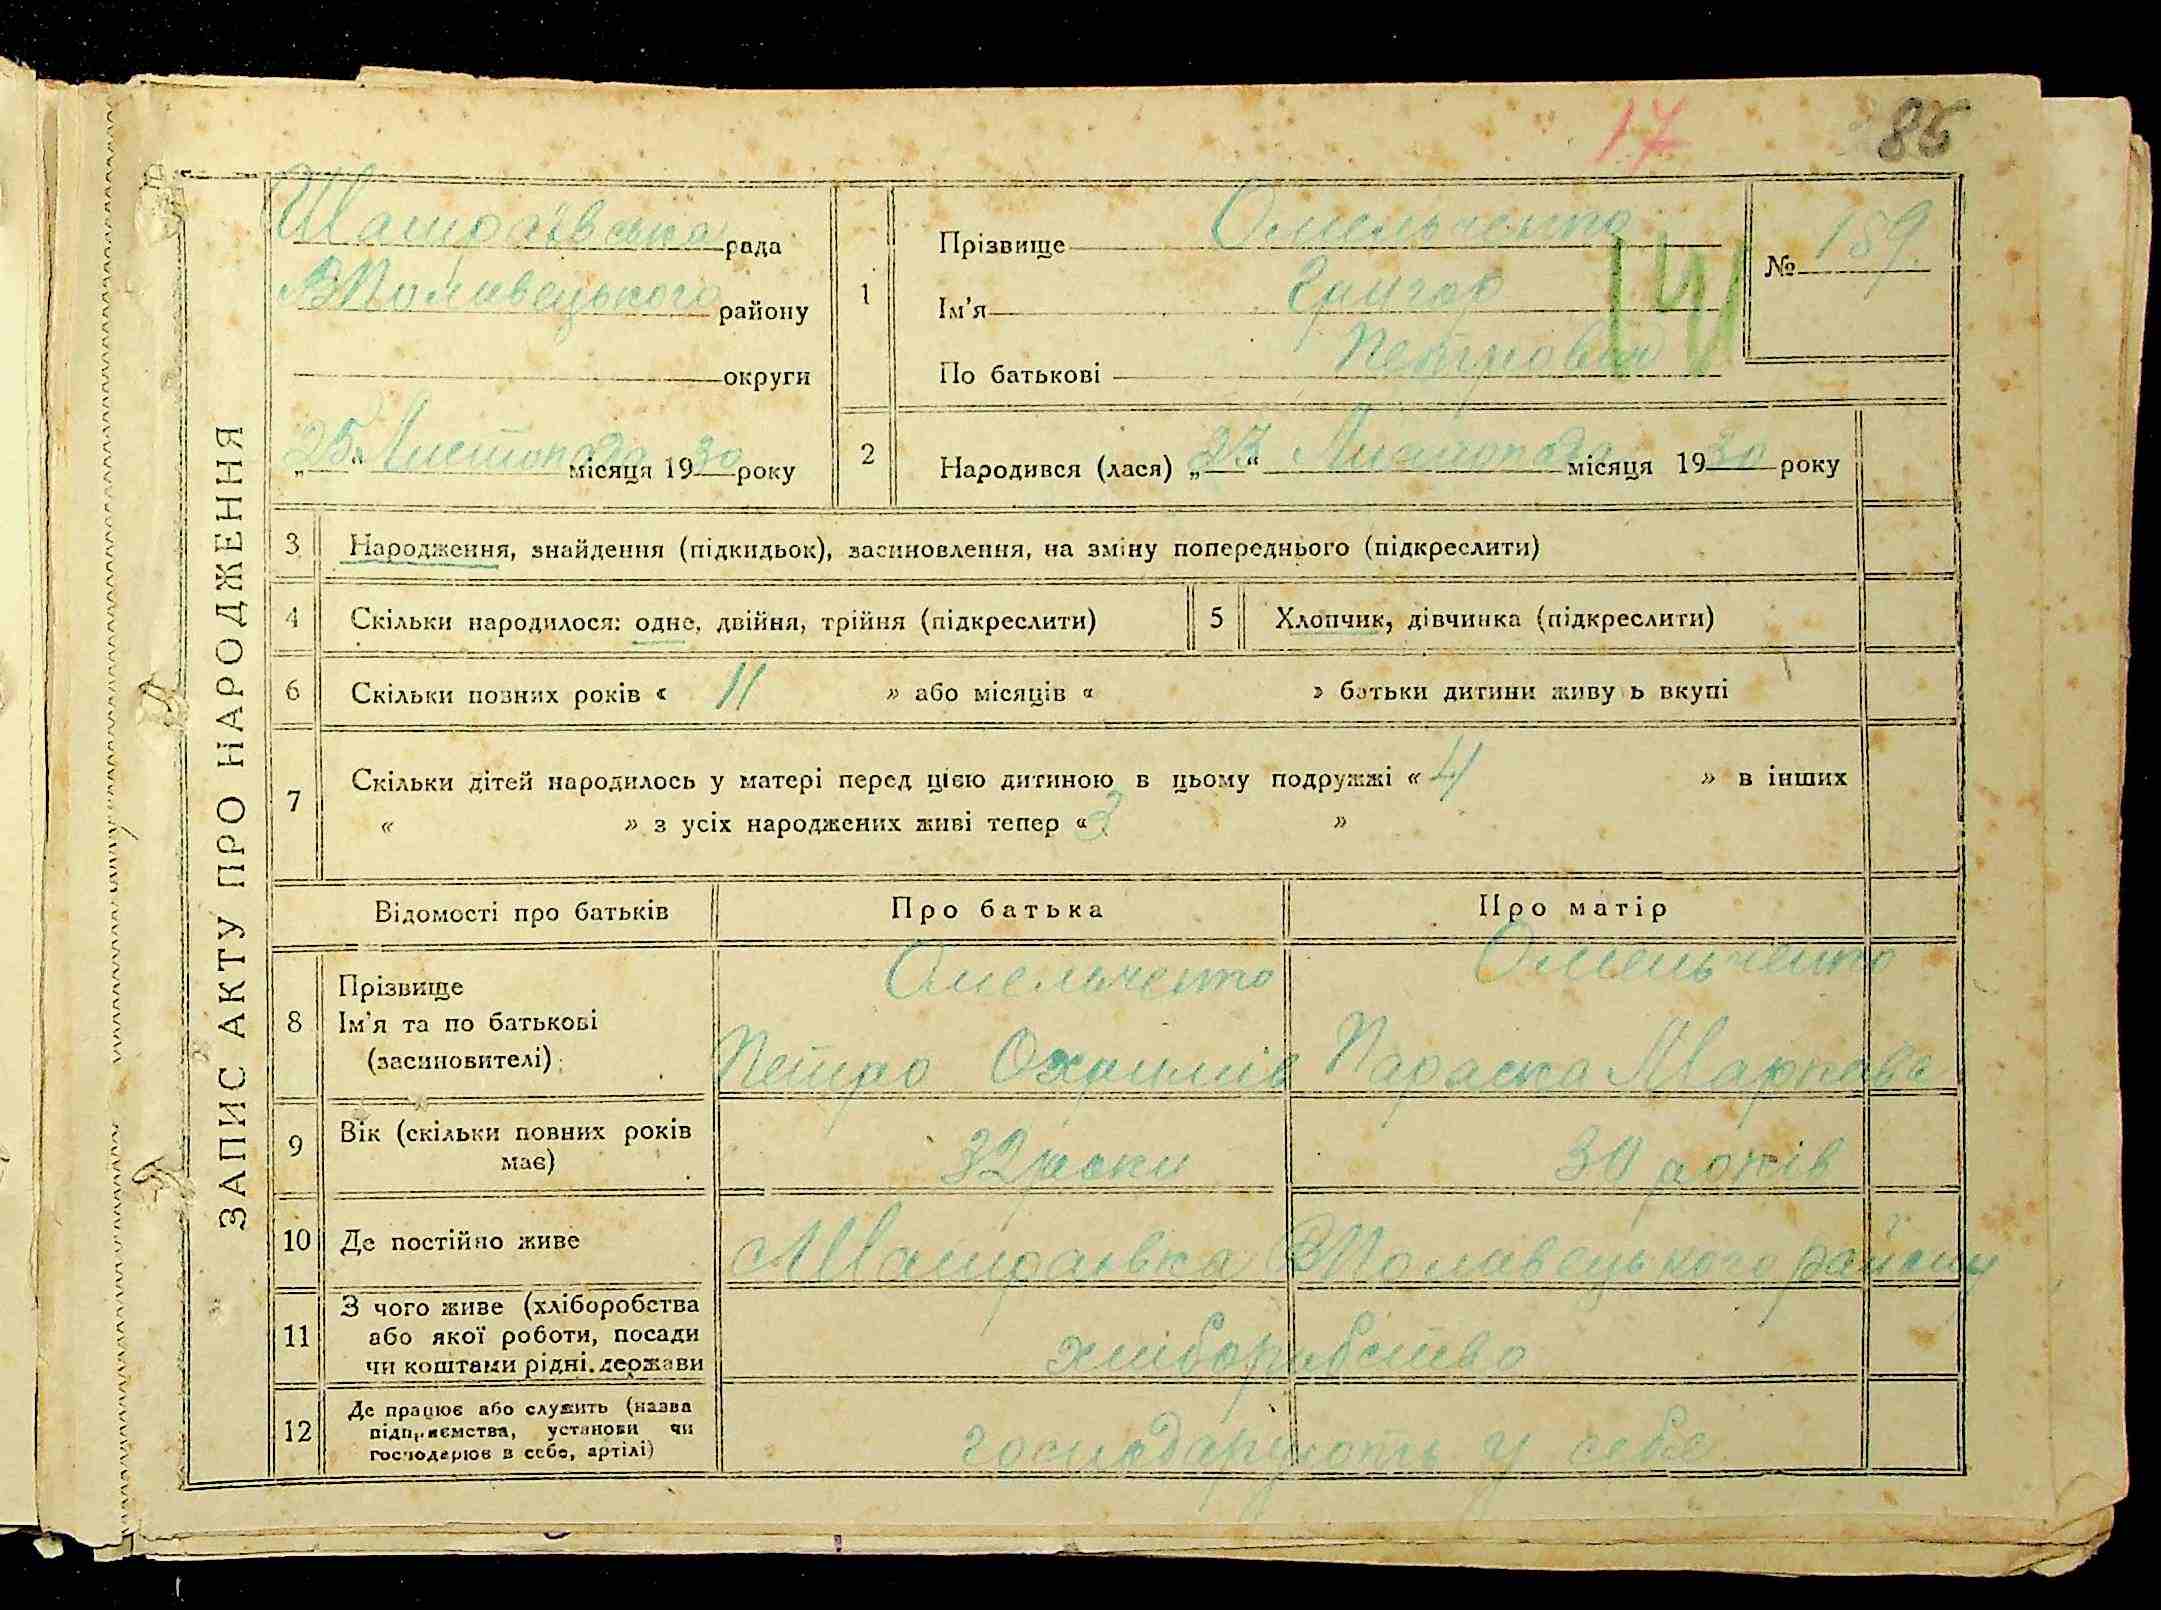 17 85
ЗАПИС АКТУ ПРО НАРОДЖЕННЯ
Шамраївська рада
В Половецького району
округи
„25“ Листопада місяця 1930 року
1
Прізвище Омельченко
Ім'я Григор
По батькові Петрович
№ 159.
2
Народився (лася) „23“ Листопада місяця 1930 року
3 Народження, знайдення (підкидьок), засиновлення, на зміну попереднього (підкреслити)
4 Скільки народилося: одне, двійня, трійня (підкреслити)
5 Хлопчик, дівчинка (підкреслити)
6 Скільки повних років « 11 » або місяців « » батьки дитини живуть вкупі
7 Скільки дітей народилось у матері перед цією дитиною в цьому подружжі « 4 » в інших
« » з усіх народжених живі тепер « 3 »
Відомості про батьків Про батька Про матір
8 Прізвище
Ім'я та по батькові
(засиновителі)
Омельченко
Петро Охримів
Омельченко
Параска Марківна
9 Вік (скільки повних років
має)
32 роки 30 років
10 Де постійно живе
с Шамраївка В Половецького району
11 З чого живе (хліборобства
або якої роботи, посади
чи коштами рідні, держави
хліборобство
12 Де працює або служить (назва
підприємства, установи чи
господарює в себе, артілі)
господарують у себе